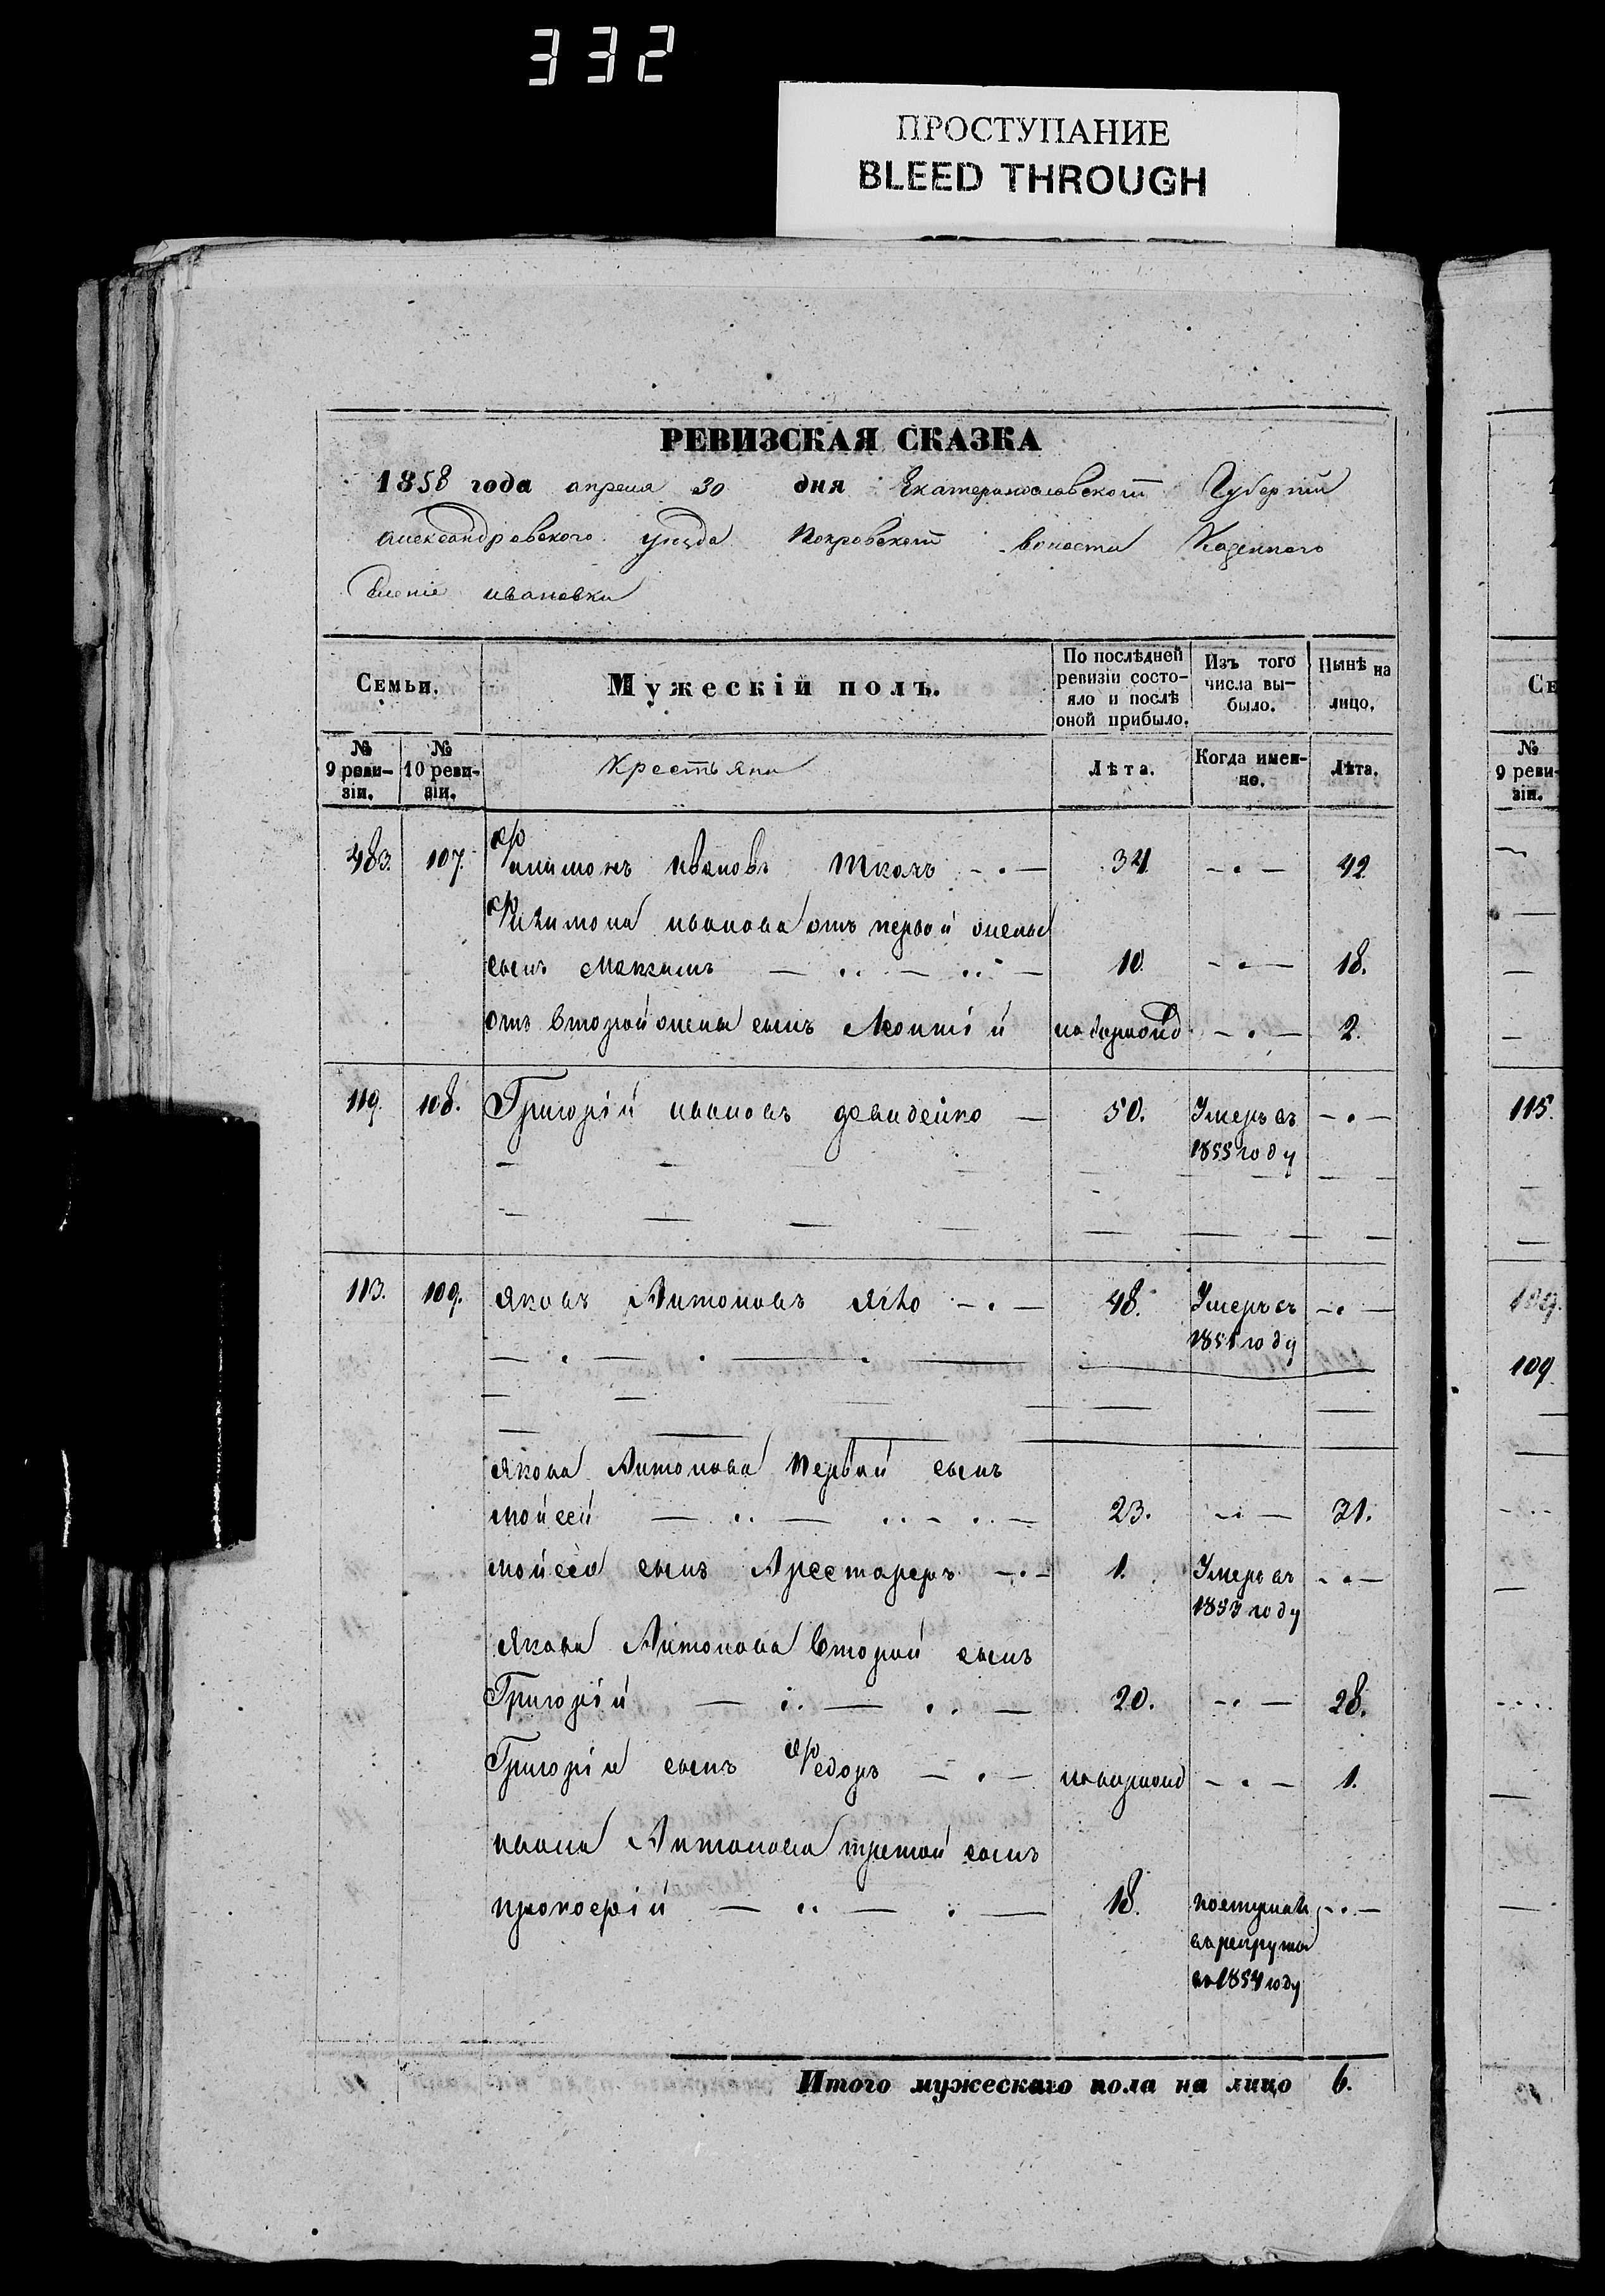 332
ПРОСТУПАНИЕ
BLEED THROUGH
РЕВИЗСКАЯ СКАЗКА
1858 года апреля 30 дня Екатеринославской Губернии
Александровского уезда Покровской волости Казенного
Селения Ивановки
Семьи.
Мужескій полъ.
По послѣдней ревизіи состо-
яло и послѣ
оной прибыло.
Изъ того
числа вы-
было.
Нынѣ на
лицо.
№
9 реви-
зіи.
№
10 реви-
зіи.
Крестьяне
Лѣта.
Когда имен-
но.
Лѣта.
483. 107. Филимонъ Ивановъ Ткачъ 34 42
Филимона Иванова отъ первой жены
сынъ Максимъ 10. 18.
отъ второй жены сынъ Леонтій новорожд 2.
119. 108. Григорій Ивановъ 50. Умеръ въ
1855 году
113. 109. Яковъ Антоновъ 48. Умеръ въ
1851 году
Якова Антонова Первый сынъ
Мойсей 23. 31.
Мойсея сынъ 1. Умеръ въ
1853 году
Якова Антонова Второй сынъ
Григорій 20. 28.
Григорія сынъ Федоръ новорожд 1.
Антонова третий сынъ
Прокофій 18. поступилъ
въ рекруты
въ 1854 году
Итого мужескаго пола на лицо 6.
Се
№
9 реви-
зіи.
115.
109